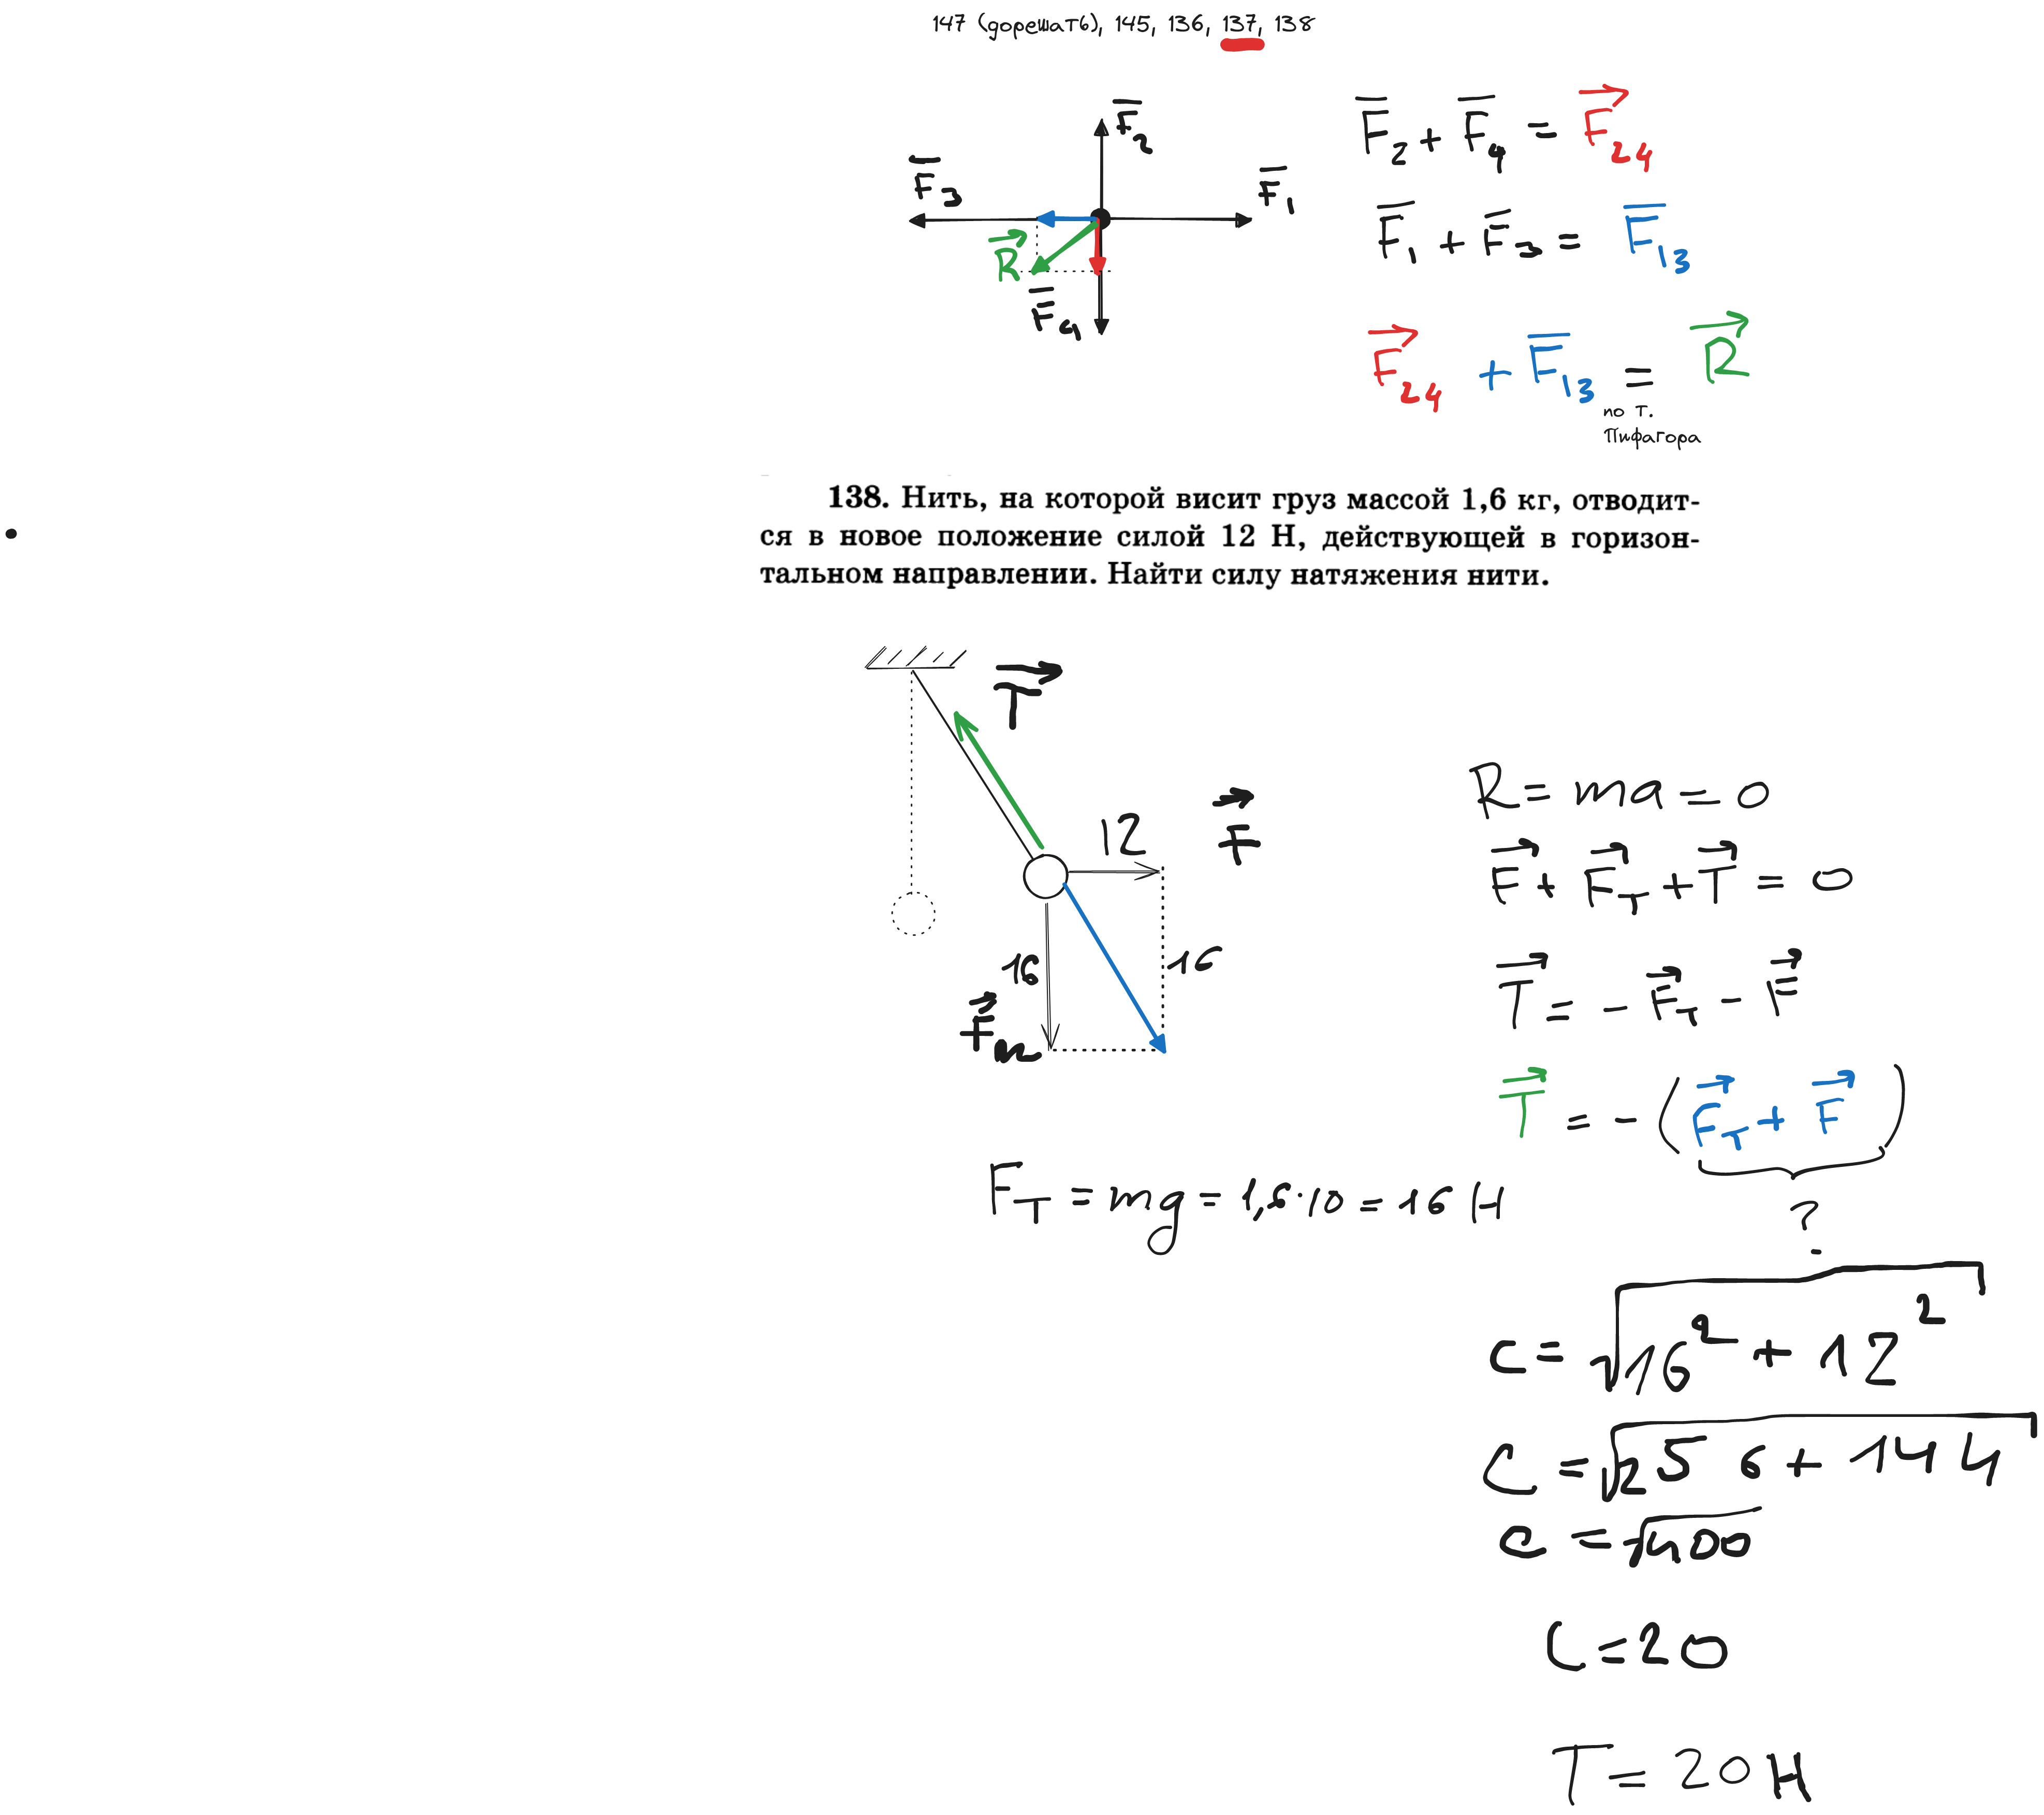 147 (дорешать), 145, 136, 137, 138
F₂
F₃
F₁
R
F₄
F₂ + F₄ = F₂₄
F₁ + F₃ = F₁₃
F₂₄ + F₁₃ = R
по т.
Пифагора
138. Нить, на которой висит груз массой 1,6 кг, отводит-
ся в новое положение силой 12 Н, действующей в горизон-
тальном направлении. Найти силу натяжения нити.
T
12
F
16
16
Fт
R = ma = 0
F + Fт + T = 0
T = - Fт - F
T = - (Fт + F)
?
Fт = mg = 1,6·10 = 16 Н
c = √16² + 12²
c = √256 + 144
c = √400
c = 20
T = 20 Н